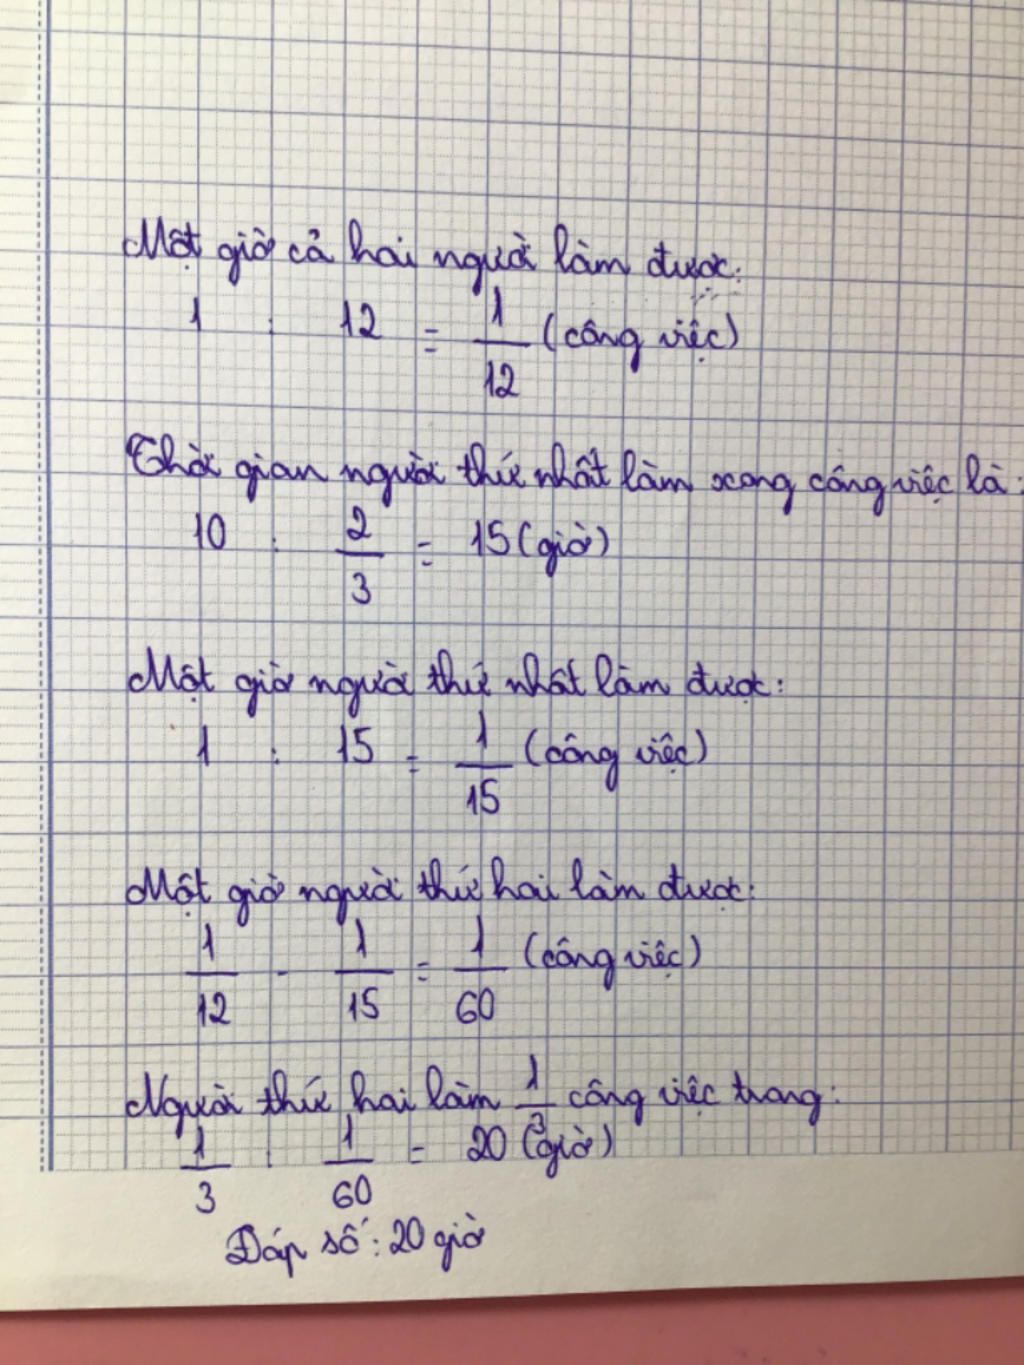 Một giờ cả hai người làm được:
1 : 12 = 1/12 (công việc)
Thời gian người thứ nhất làm xong công việc là:
10 : 2/3 = 15 (giờ)
Một giờ người thứ nhất làm được:
1 : 15 = 1/15 (công việc)
Một giờ người thứ hai làm được:
1/12 - 1/15 = 1/60 (công việc)
Người thứ hai làm 1/3 công việc trong:
1/3 : 1/60 = 20 (giờ)
Đáp số: 20 giờ